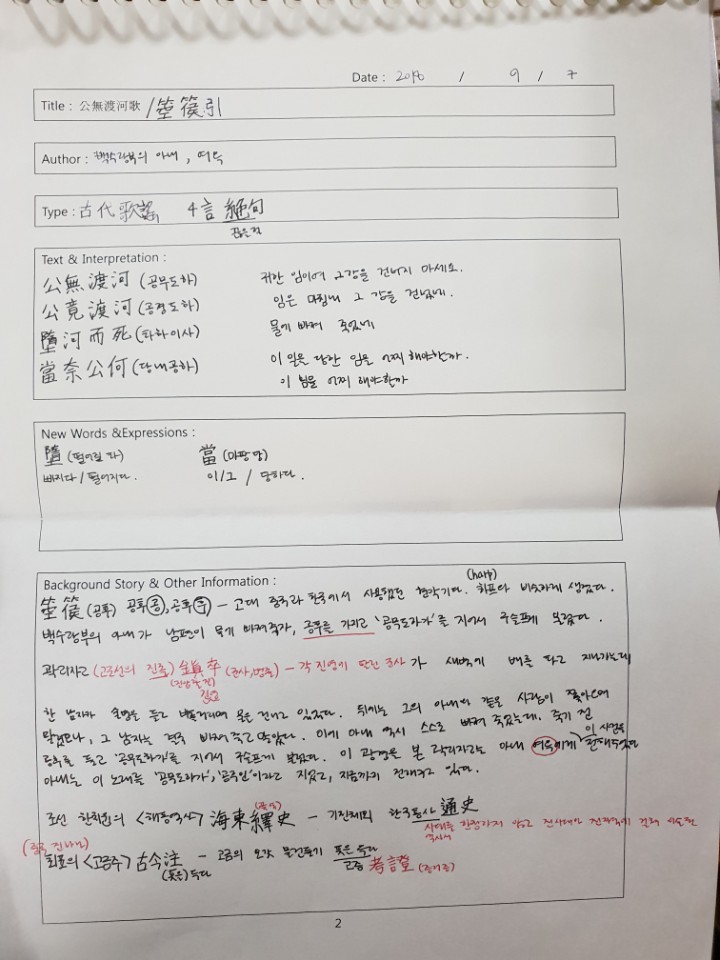 Date : 2016 / 9 / 7
Title : 公無渡河歌 / 箜篌引
Author : 백수광부의 아내, 여옥
Type : 古代歌謠 4言 絕句
Text & Interpretation :
公無渡河 (공무도하) 귀한 임이여 그 강을 건너지 마세요.
公竟渡河 (공경도하) 임은 마침내 그 강을 건넜네.
墮河而死 (타하이사) 물에 빠져 죽었네
當奈公何 (당내공하) 이 일을 당한 임을 어찌 해야한가.
이 님을 어찌 해야한가
New Words &Expressions :
墮 (떨어질 타) 當 (마땅 당)
빠지다 / 떨어지다. 이/그 / 당하다.
Background Story & Other Information :
(harp)
箜篌 (공후) 공후(공), 공후(후) – 고대 중국과 한국에서 사용했던 현악기다. 하프와 비슷하게 생겼다.
백수광부의 아내가 남편이 물에 빠져죽자, 공후를 가지고 '공무도하가'를 지어서 구슬프게 불렀다.
곽리자고 (고조선의 진졸) 鎭卒 – 각 진영에 딸린 군사 가 새벽에 배를 타고 지나가는데
한 남자가 술병을 들고 비틀거리며 물을 건너고 있었다. 뒤에는 그의 아내와 같은 사람이 쫓아오며
말렸으나, 그 남자는 결국 빠져 죽고 말았다. 이에 아내 역시 스스로 빠져 죽었는데. 죽기 전
공후를 들고 '공무도하가'를 지어서 구슬프게 불렀다. 이 광경을 본 곽리자고는 아내 여옥에게 이 사연을 전해주었다
아내는 이 노래를 '공무도하가', '공후인'이라고 지었고, 지금까지 전해지고 있다.
조선 한치윤의 <해동역사> 海東繹史 – 기전체의 한국통사 通史
시대를 한정하지 않고 전시대와 전지역에 걸쳐 서술한
역사서
(중국 진나라)
최표의 <고금주> 古今注 – 고금의 오갖 물건들의 뜻을 적다
고증 考證
2